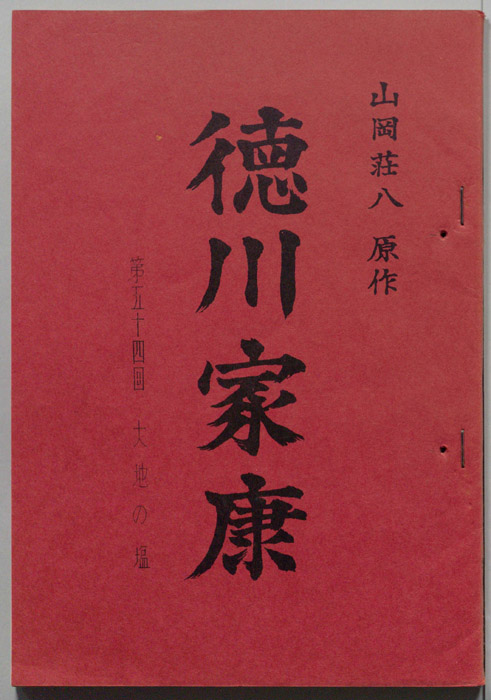 山岡荘八 原作
徳川家康
第五十四回 大地の塩